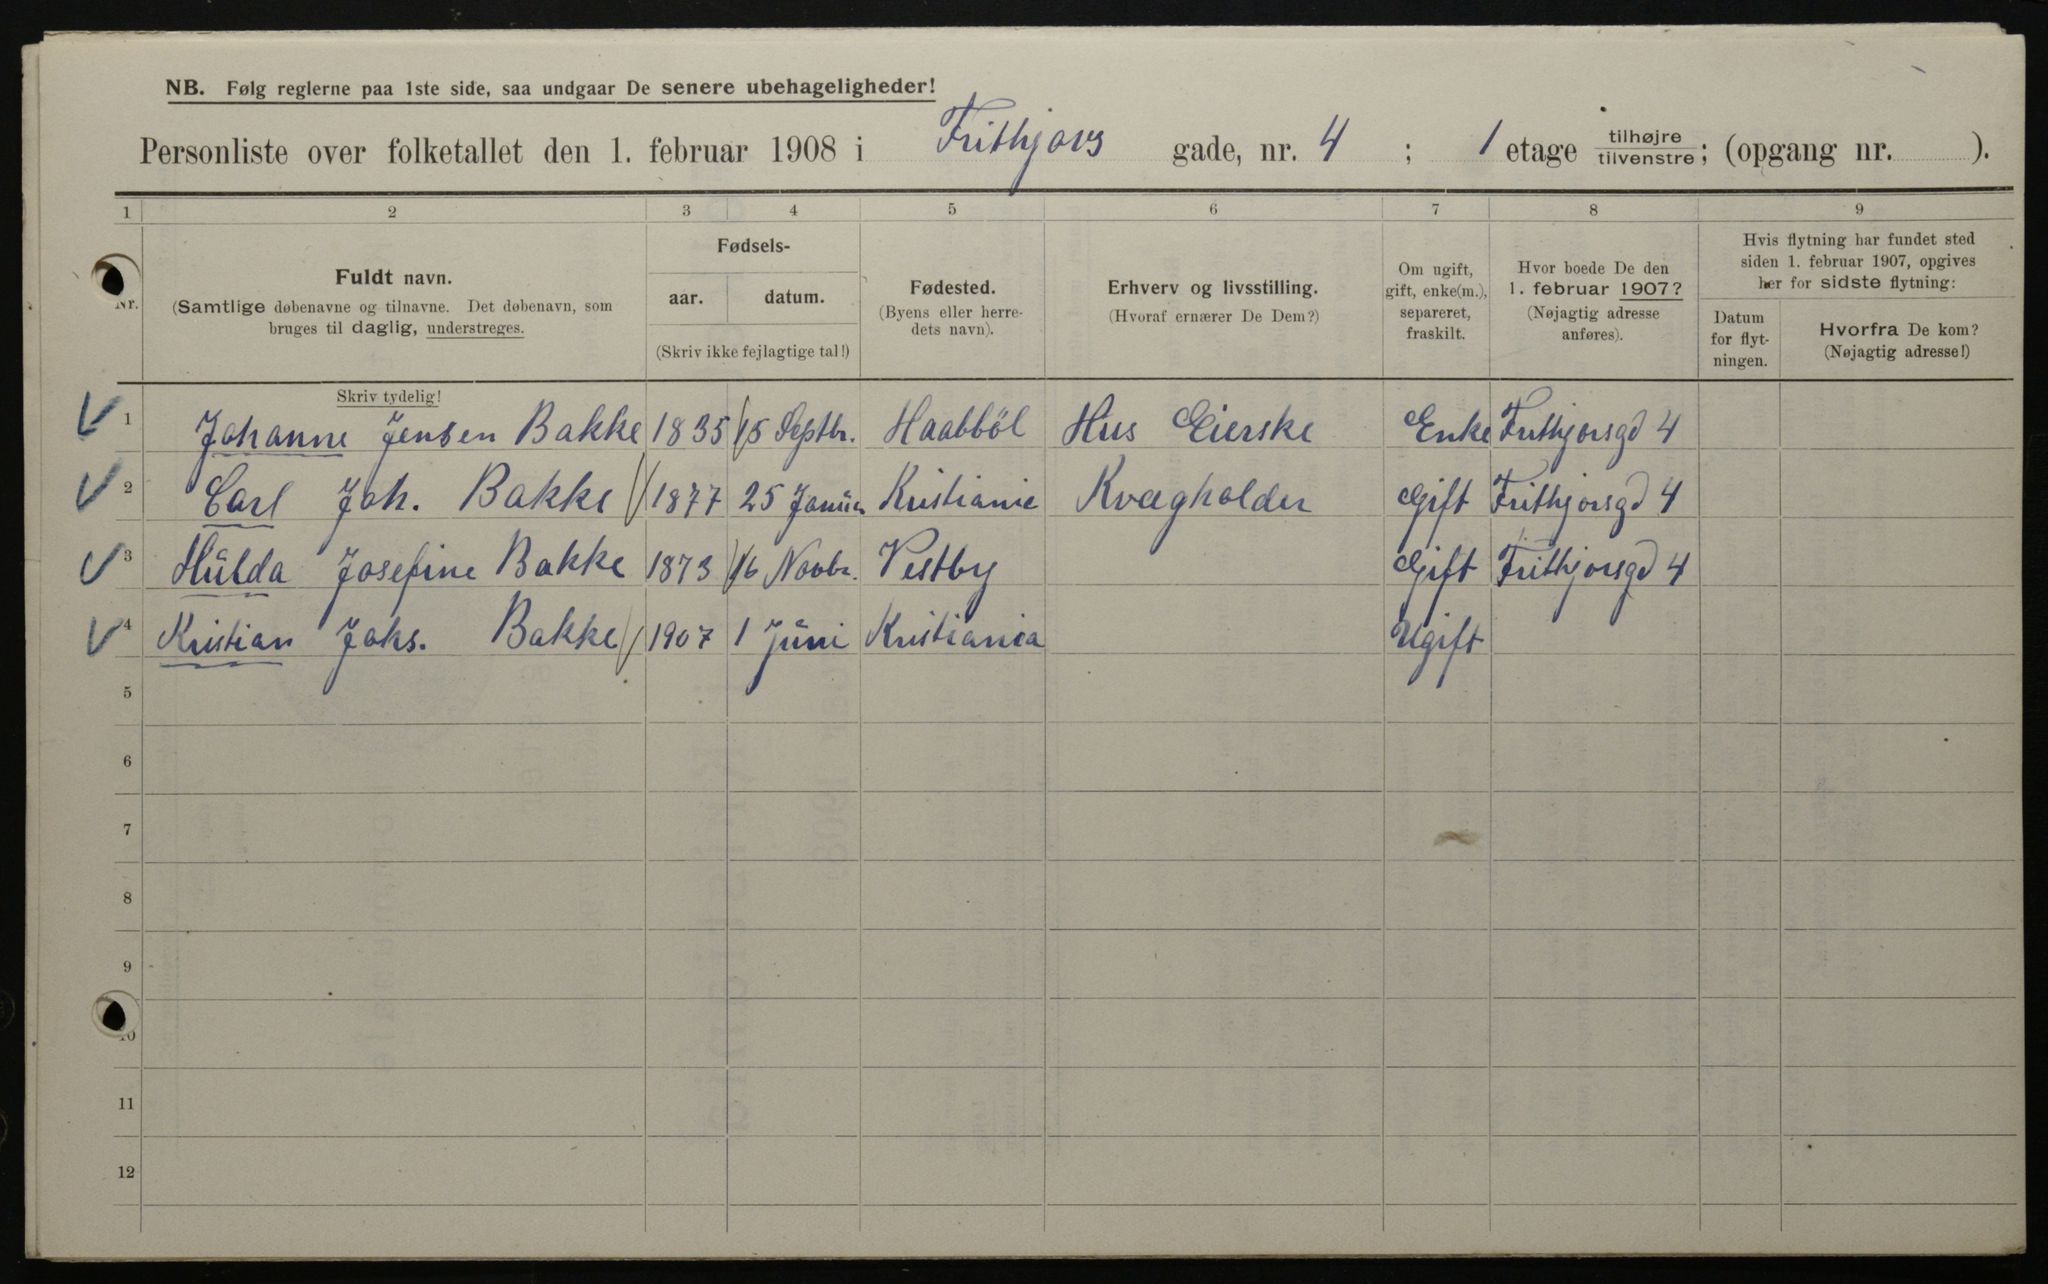 NB. Følg reglerne paa 1ste side, saa undgaar De senere ubehageligheder!
Personliste over folketallet den 1. februar 1908 i Frithjovs gade, nr. 4 ; 1 etage tilhøjre tilvenstre; (opgang nr. ).
1 2 3 4 5 6 7 8 9
Nr.
Fuldt navn.
(Samtlige døbenavne og tilnavne. Det døbenavn, som
bruges til daglig, understreges.
Skriv tydelig!
Fødsels-
aar. datum.
(Skriv ikke fejlagtige tal!)
Fødested.
(Byens eller herre-
dets navn).
Erhverv og livsstilling.
(Hvoraf ernærer De Dem?)
Om ugift,
gift, enke(m.),
separeret,
fraskilt.
Hvor boede De den
1. februar 1907?
(Nøjagtig adresse
anføres).
Hvis flytning har fundet sted
siden 1. februar 1907, opgives
her for sidste flytning:
Datum
for flyt-
ningen.
Hvorfra De kom?
(Nøjagtig adresse!)
1 Johanne Jensen Bakke 1835 15 Septbr. Haabböl Hus Eierske Enke Frithjovsgd 4
2 Carl Joh. Bakke 1877 25 Januar Kristiania Kvægholder Gift Frithjovsgd 4
3 Hulda Josefine Bakke 1873 16 Novbr. Vestby Gift Frithjovsgd 4
4 Kristian Johs. Bakke 1907 1 Juni Kristiania Ugift
5
6
7
8
9
10
11
12